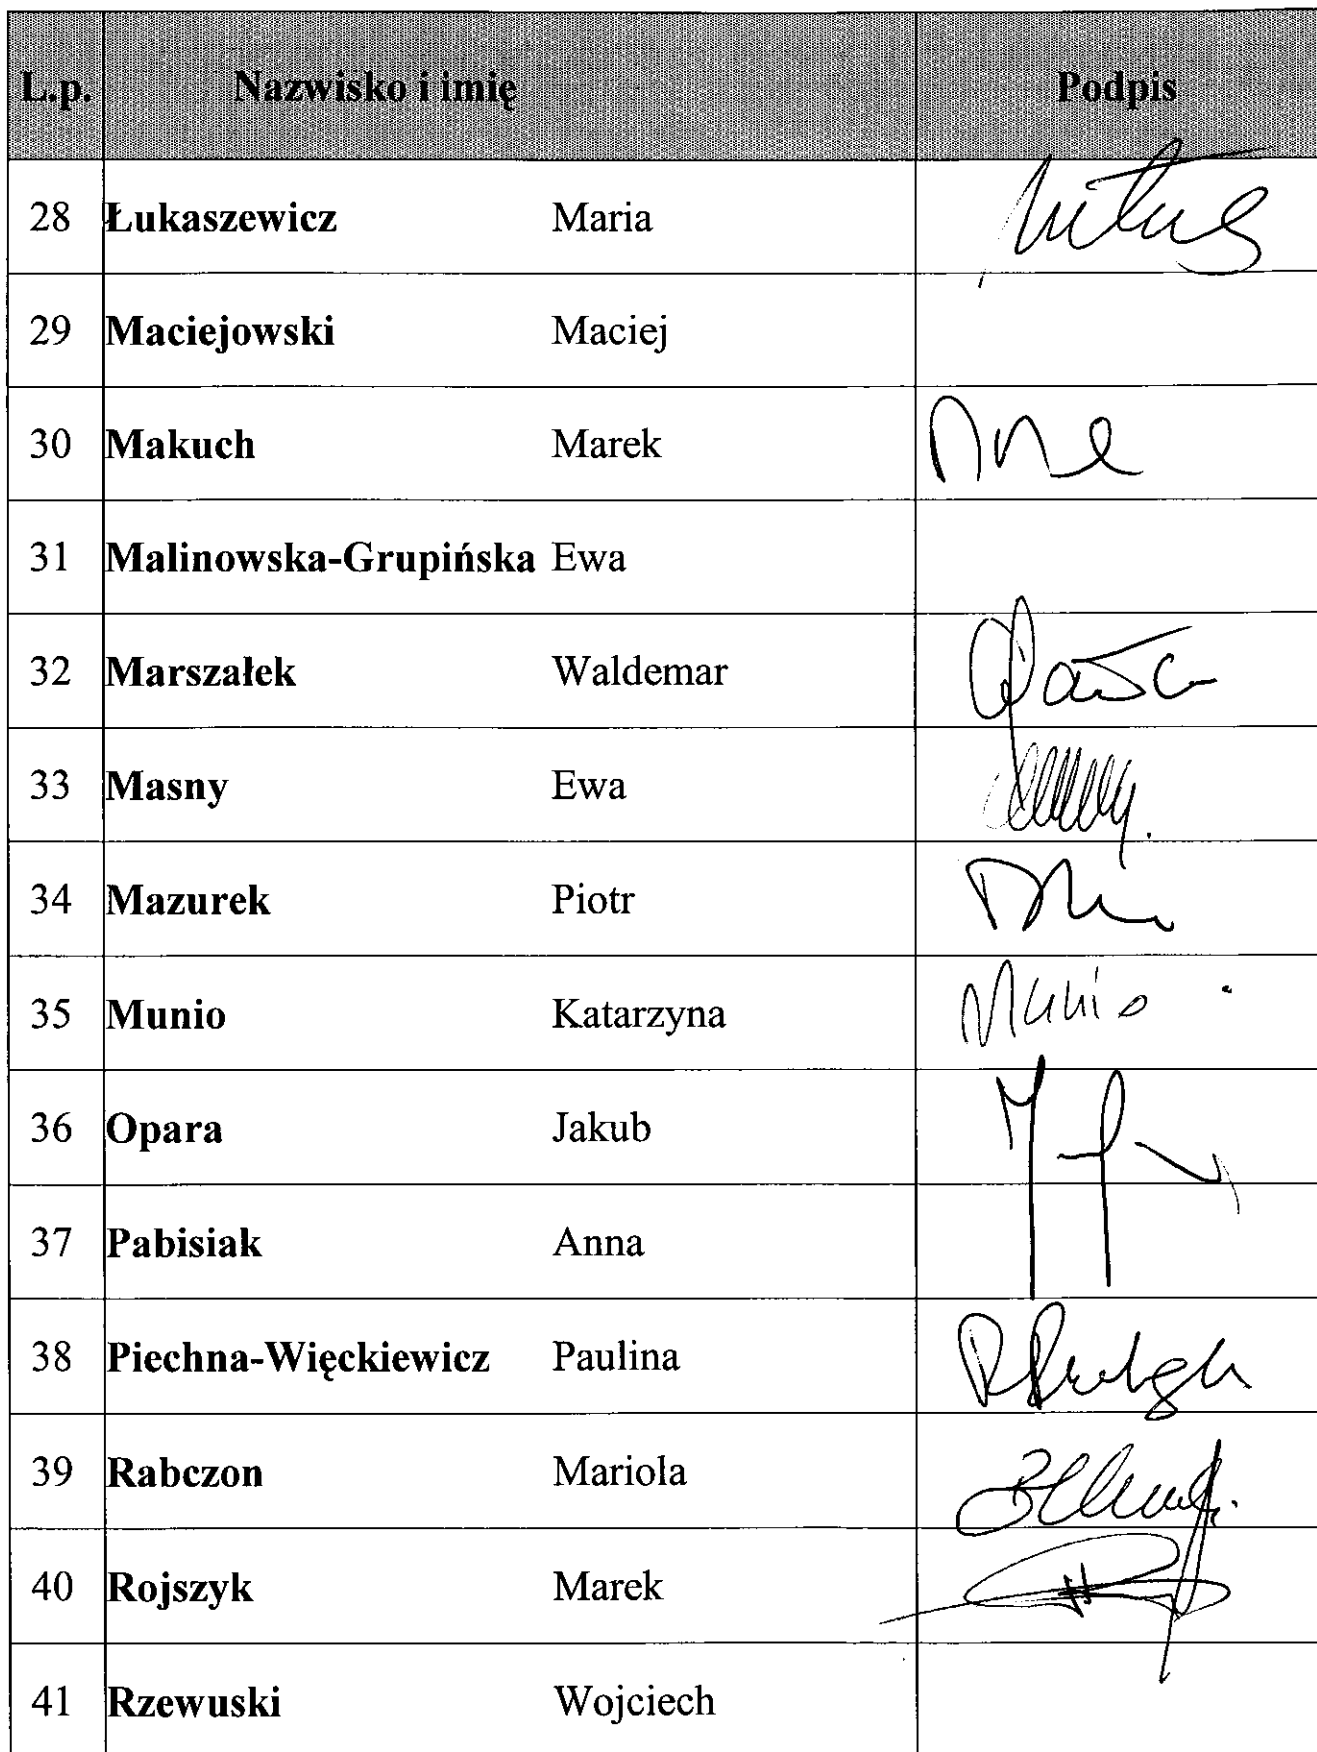 L.p. Nazwisko i imię Podpis
28 Łukaszewicz Maria
29 Maciejowski Maciej
30 Makuch Marek
31 Malinowska-Grupińska Ewa
32 Marszałek Waldemar
33 Masny Ewa
34 Mazurek Piotr
35 Munio Katarzyna Munio
36 Opara Jakub
37 Pabisiak Anna
38 Piechna-Więckiewicz Paulina
39 Rabczon Mariola
40 Rojszyk Marek
41 Rzewuski Wojciech